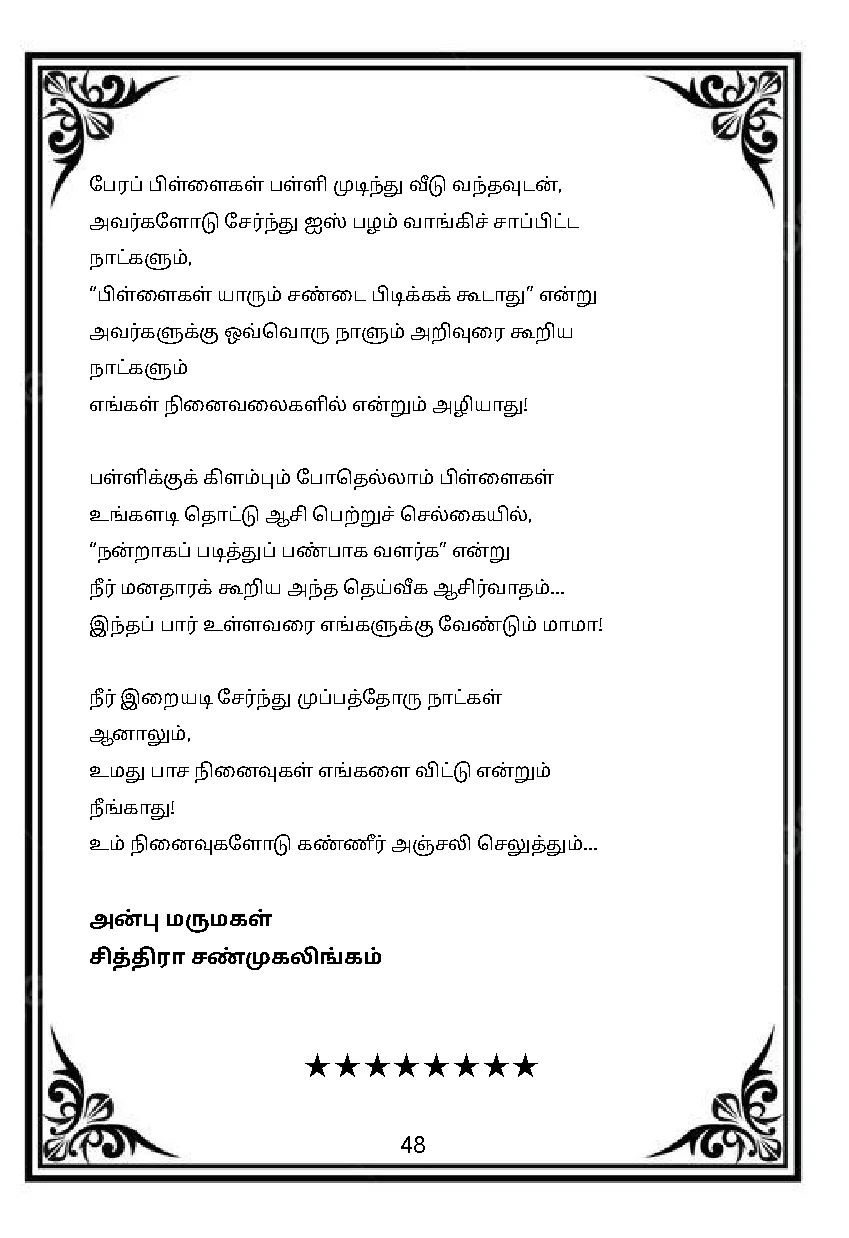 பேரப் பிள்ளைகள் பள்ளி முடிந்து வீடு வந்தவுடன்,
அவர்களோடு சேர்ந்து ஐஸ் பழம் வாங்கிச் சாப்பிட்ட
நாட்களும்,
“பிள்ளைகள் யாரும் சண்டை பிடிக்கக் கூடாது” என்று
அவர்களுக்கு ஒவ்வொரு நாளும் அறிவுரை கூறிய
நாட்களும்
எங்கள் நினைவலைகளில் என்றும் அழியாது!
பள்ளிக்குக் கிளம்பும் போதெல்லாம் பிள்ளைகள்
உங்களடி தொட்டு ஆசி பெற்றுச் செல்கையில்,
“நன்றாகப் படித்துப் பண்பாக வளர்க” என்று
நீர் மனதாரக் கூறிய அந்த தெய்வீக ஆசிர்வாதம்...
இந்தப் பார் உள்ளவரை எங்களுக்கு வேண்டும் மாமா!
நீர் இறையடி சேர்ந்து முப்பத்தோரு நாட்கள்
ஆனாலும்,
உமது பாச நினைவுகள் எங்களை விட்டு என்றும்
நீங்காது!
உம் நினைவுகளோடு கண்ணீர் அஞ்சலி செலுத்தும்...
அன்பு மருமகள்
சித்திரா சண்முகலிங்கம்
★★★★★★★★
48